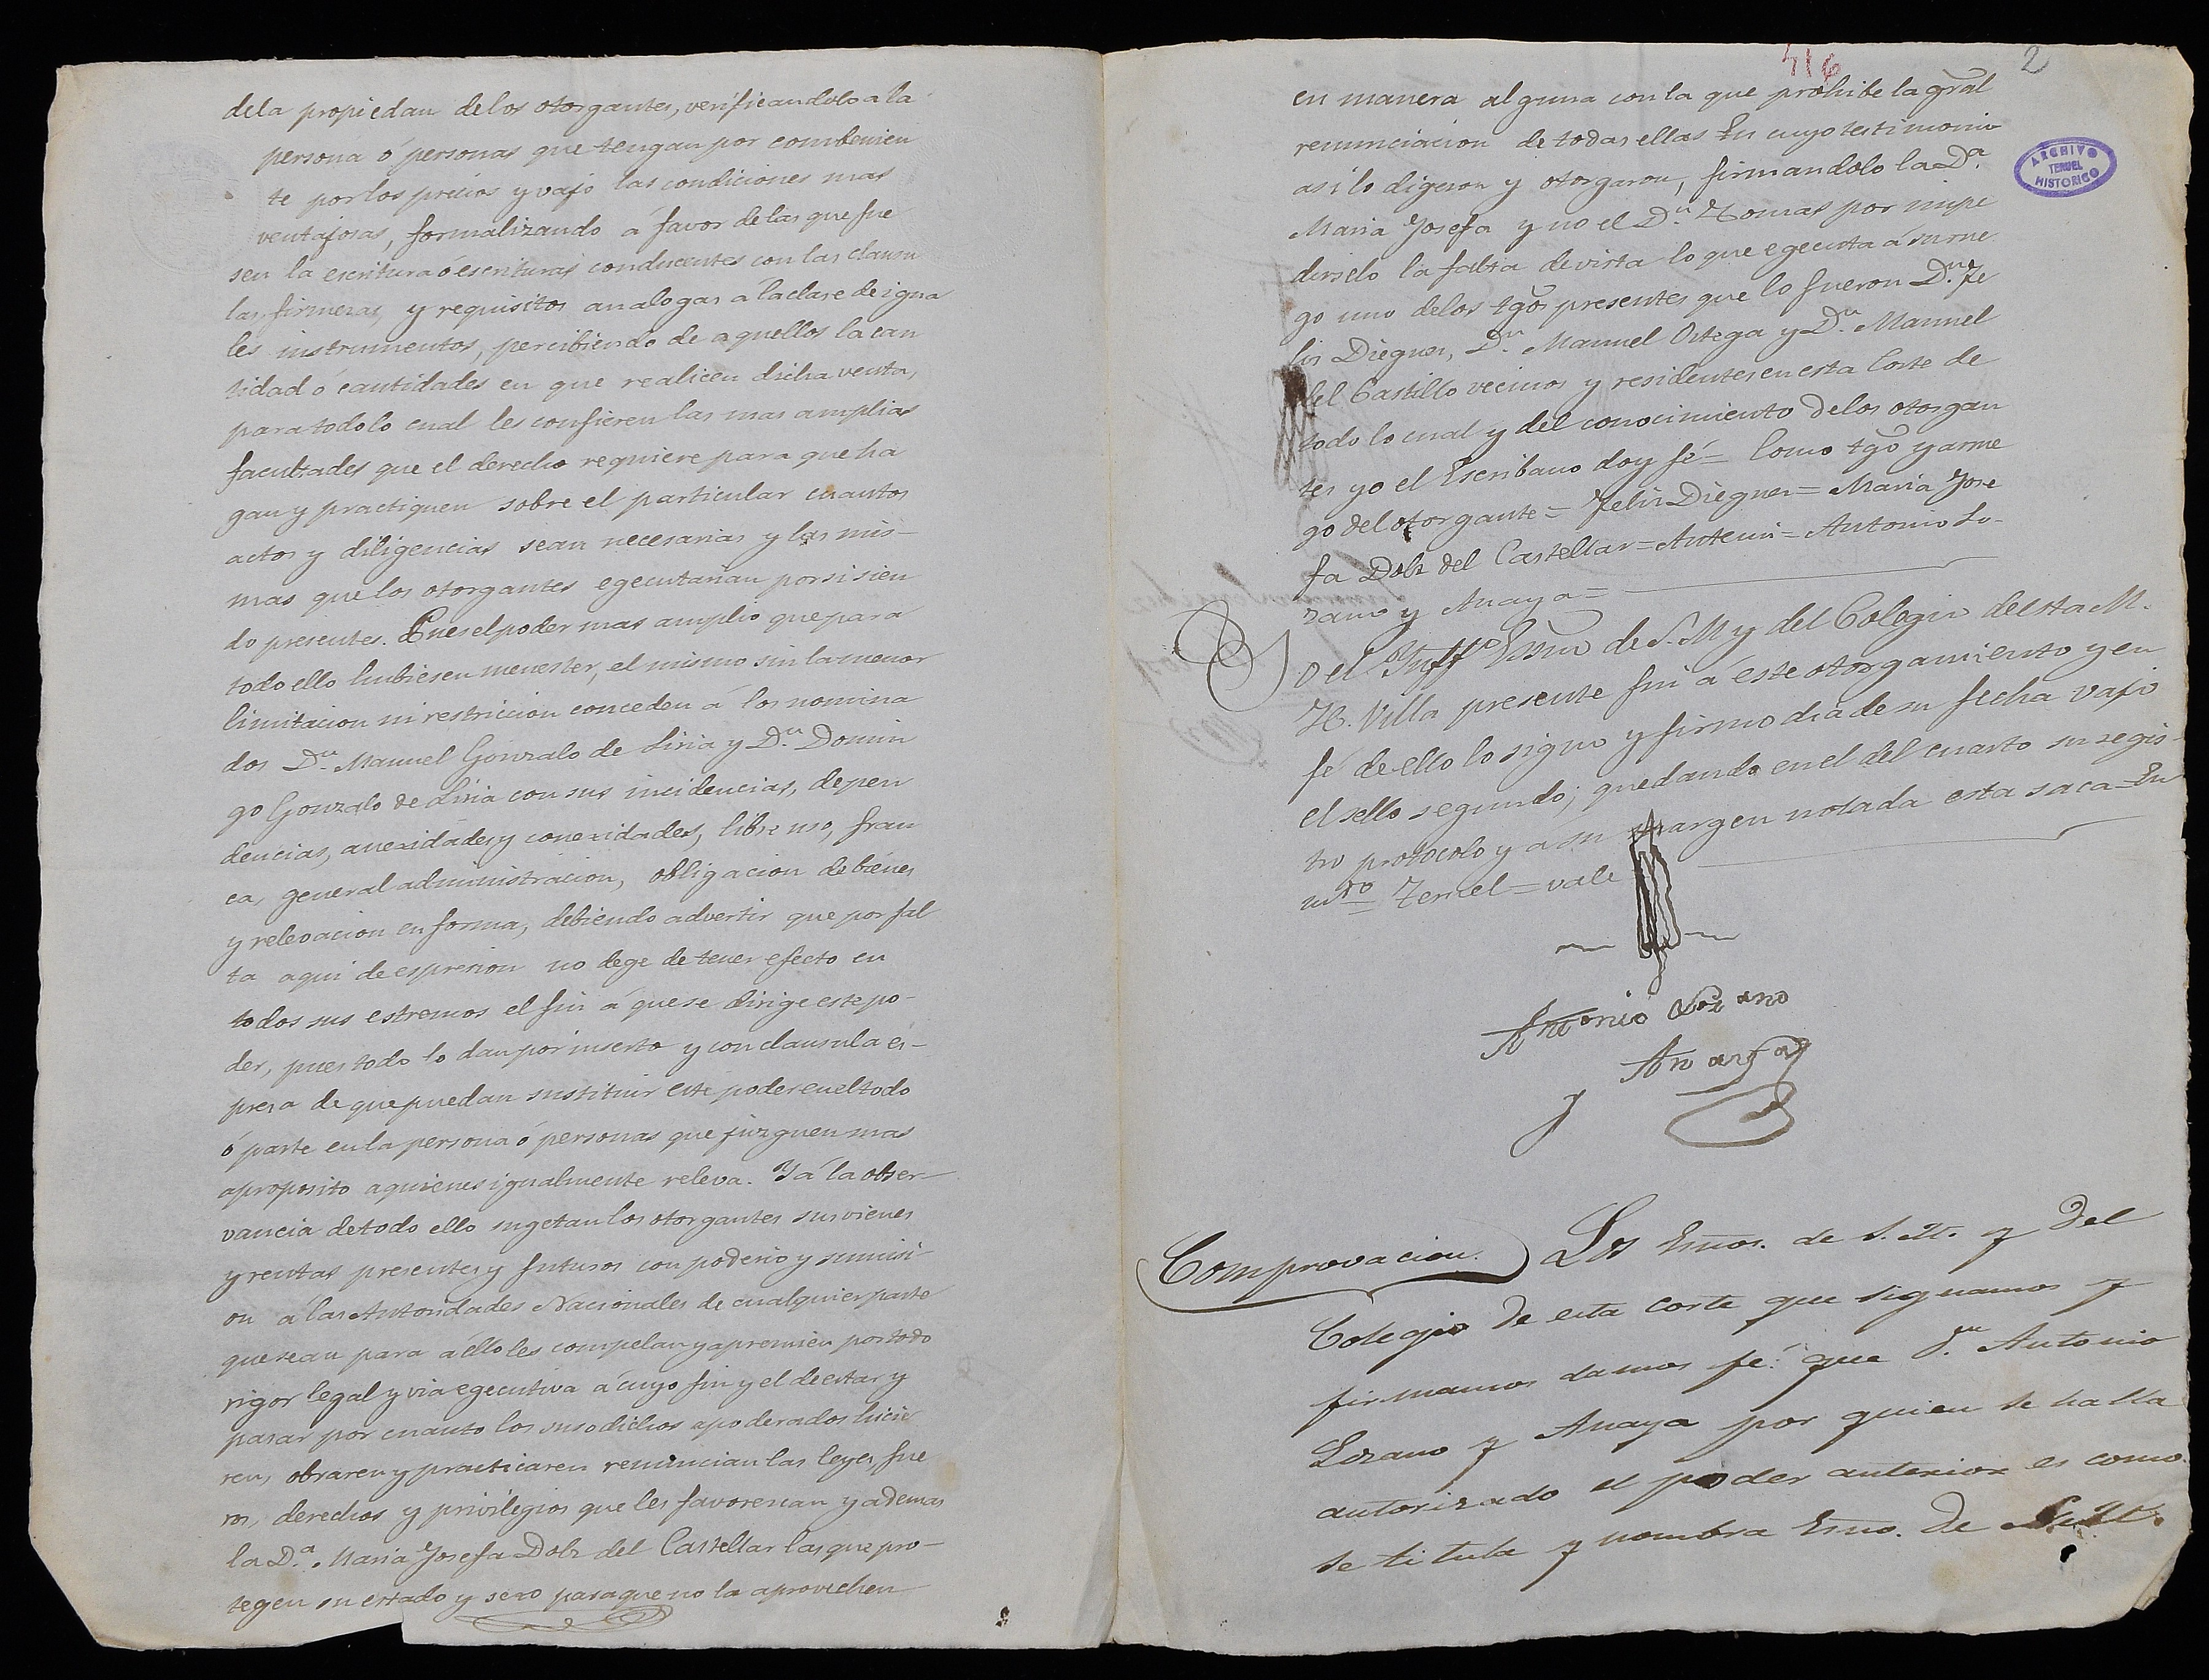 dela propiedan delos otorgantes, verificandolo a la
persona ó personas que tengan por combenien
te por los precios y vajo las condiciones mas
ventajosas, formalizando á favor de las que fue
sen la escritura ó escrituras conducentes con las clausu
las, firmezas, y requisitos analogas á la clase de igua
les instrumentos, percibiendo de aquellos la can
tidad ó cantidades en que realicen dicha venta,
para todo lo cual les confieren las mas amplias
facultades que el derecho requiere para que ha
gan y practiquen sobre el particular cuantos
actos y diligencias sean necesarias y las mis-
mas que los otorgantes egecutarian por si sien
do presentes. Pues el poder mas amplio que para
todo ello hubiesen menester, el mismo sin la menor
limitacion ni restriccion conceden á los nomina
dos Dn. Manuel Gonzalo de Liria y Dn. Domin
go Gonzalo de Liria con sus incidencias, depen
dencias, anexidades y conexidades, libre uso, fran
ca, general administracion, obligacion de bienes
y relevacion en forma, debiendo advertir que por fal
ta aqui de espresion no dege de tener efecto en
todos sus estremos el fin á que se dirige este po-
der, pues todo lo dan por inserto y con clausula es-
presa de que puedan sustituir este poder en el todo
ó parte en la persona ó personas que juzguen mas
aproposito a quienes igualmente releva. Y á la obser-
vancia de todo ello sugetan los otorgantes sus vienes
y rentas presentes y futuros con poderio y sumisi-
on á las Autoridades Nacionales de cualquier parte
que sean para á ello les compelan y apremien por todo
rigor legal y via egecutiva á cuyo fin y el de estar y
pasar por cuanto los susodichos apoderados hicie
ren, obraren y practicaren renuncian las leyes, fue
ros, derechos y privilegios que les favorescan y ademas
la Da. Maria Josefa Dolz del Castellar las que pro-
tegen su estado y sexo para que no la aprovechen
416
2
en manera alguna con la que prohibe la gral
renunciacion de todas ellas En cuyo testimonio
asi lo digeron y otorgaron, firmandolo la Da.
Maria Josefa y no el Dn. Tomas por impe
dirselo la falta de vista lo que egecuta á su rue
go uno de los tgos presentes que lo fueron Dn. Fe
lix Dieguez, Dn. Manuel Ortega y Dn. Manuel
del Castillo vecinos y residentes en esta Corte de
todo lo cual y del conocimiento de los otorgan
tes yo el Escribano doy fé = Como tgo y a rue
go del otorgante = Felix Dieguez = Maria Jose
fa Dolz del Castellar = Antemi = Antonio Lo-
zano y Anaya =
Yo el Ynffto Essno de S. M y del Colegio de esta M.
H. Villa presente fui á este otorgamiento y en
fé de ello lo signo y firmo dia de su fecha vajo
el sello segundo; quedando en el del cuarto su regis-
tro protocolo y a su margen notada esta saca = En
mdo = Teruel = vale
Antonio Lozano
y Anaya
Comprovacion. Los Essnos. de S. M. y del
Colegio de esta corte que signamos y
firmamos damos fé: que Dn. Antonio
Lozano y Anaya por quien se halla
autorizado el poder anterior es como
se titula y nombra Essno. de S. M.
ARCHIVO
TERUEL
HISTORICO